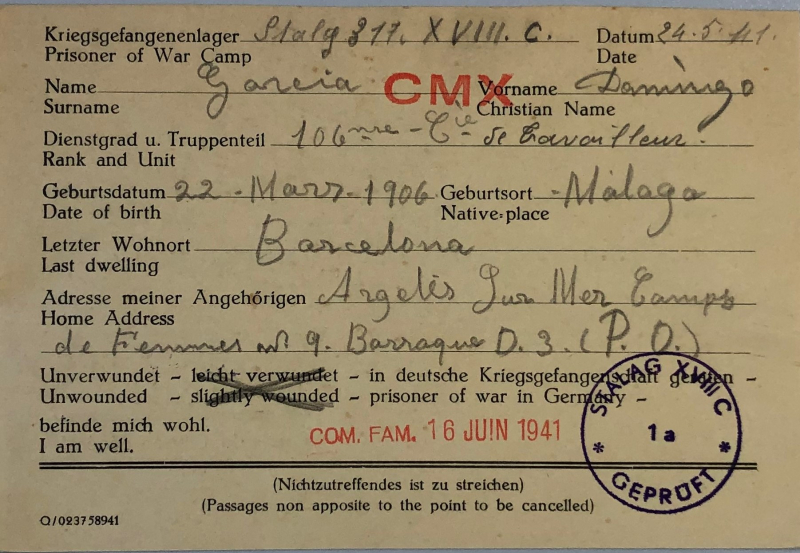 Kriegsgefangenenlager Stalg 317. XVIII. C. Datum 24.5.41.
Prisoner of War Camp Date
Name Garcia CMX Vorname Domingo
Surname Christian Name
Dienstgrad u. Truppenteil 106me - Cie de travailleur.
Rank and Unit
Geburtsdatum 22 - Mars - 1906 Geburtsort - Màlaga
Date of birth Native=place
Letzter Wohnort Barcelona
Last dwelling
Adresse meiner Angehörigen Argelès Sur Mer Camps
Home Address
de Femmes nº 9. Barraque D. 3. (P. O.)
Unverwundet – leicht verwundet – in deutsche Kriegsgefangenschaft geraten –
Unwounded – slightly wounded – prisoner of war in Germany –
befinde mich wohl.
I am well.
COM. FAM. 16 JUIN 1941
STALAG XVIII C
1a
* GEPRÜFT *
(Nichtzutreffendes ist zu streichen)
(Passages non apposite to the point to be cancelled)
Q/023758941